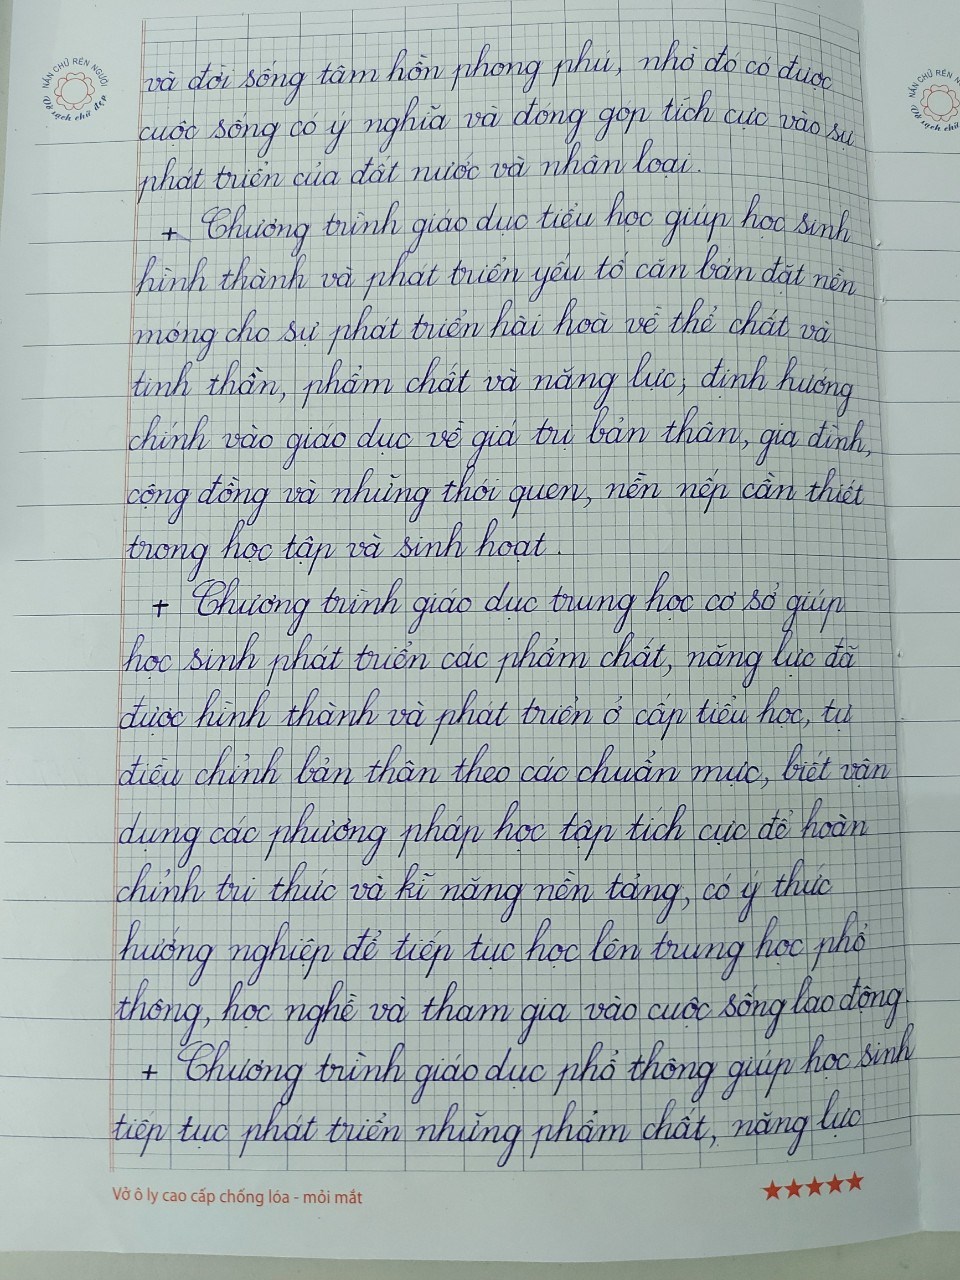 NẮN CHỮ RÈN NGƯỜI
Vở sạch chữ đẹp
và đời sống tâm hồn phong phú, nhờ đó có được
cuộc sống có ý nghĩa và đóng góp tích cực vào sự
phát triển của đất nước và nhân loại.
+ Chương trình giáo dục tiểu học giúp học sinh
hình thành và phát triển yếu tố căn bản đặt nền
móng cho sự phát triển hài hoà về thể chất và
tinh thần, phẩm chất và năng lực; định hướng
chính vào giáo dục về giá trị bản thân, gia đình,
cộng đồng và những thói quen, nền nếp cần thiết
trong học tập và sinh hoạt.
+ Chương trình giáo dục trung học cơ sở giúp
học sinh phát triển các phẩm chất, năng lực đã
được hình thành và phát triển ở cấp tiểu học, tự
điều chỉnh bản thân theo các chuẩn mực, biết vận
dụng các phương pháp học tập tích cực để hoàn
chỉnh tri thức và kĩ năng nền tảng, có ý thức
hướng nghiệp để tiếp tục học lên trung học phổ
thông, học nghề và tham gia vào cuộc sống lao động.
+ Chương trình giáo dục phổ thông giúp học sinh
tiếp tục phát triển những phẩm chất, năng lực
Vở ô ly cao cấp chống lóa - mỏi mắt
NẮN CHỮ RÈN
Vở sạch chữ